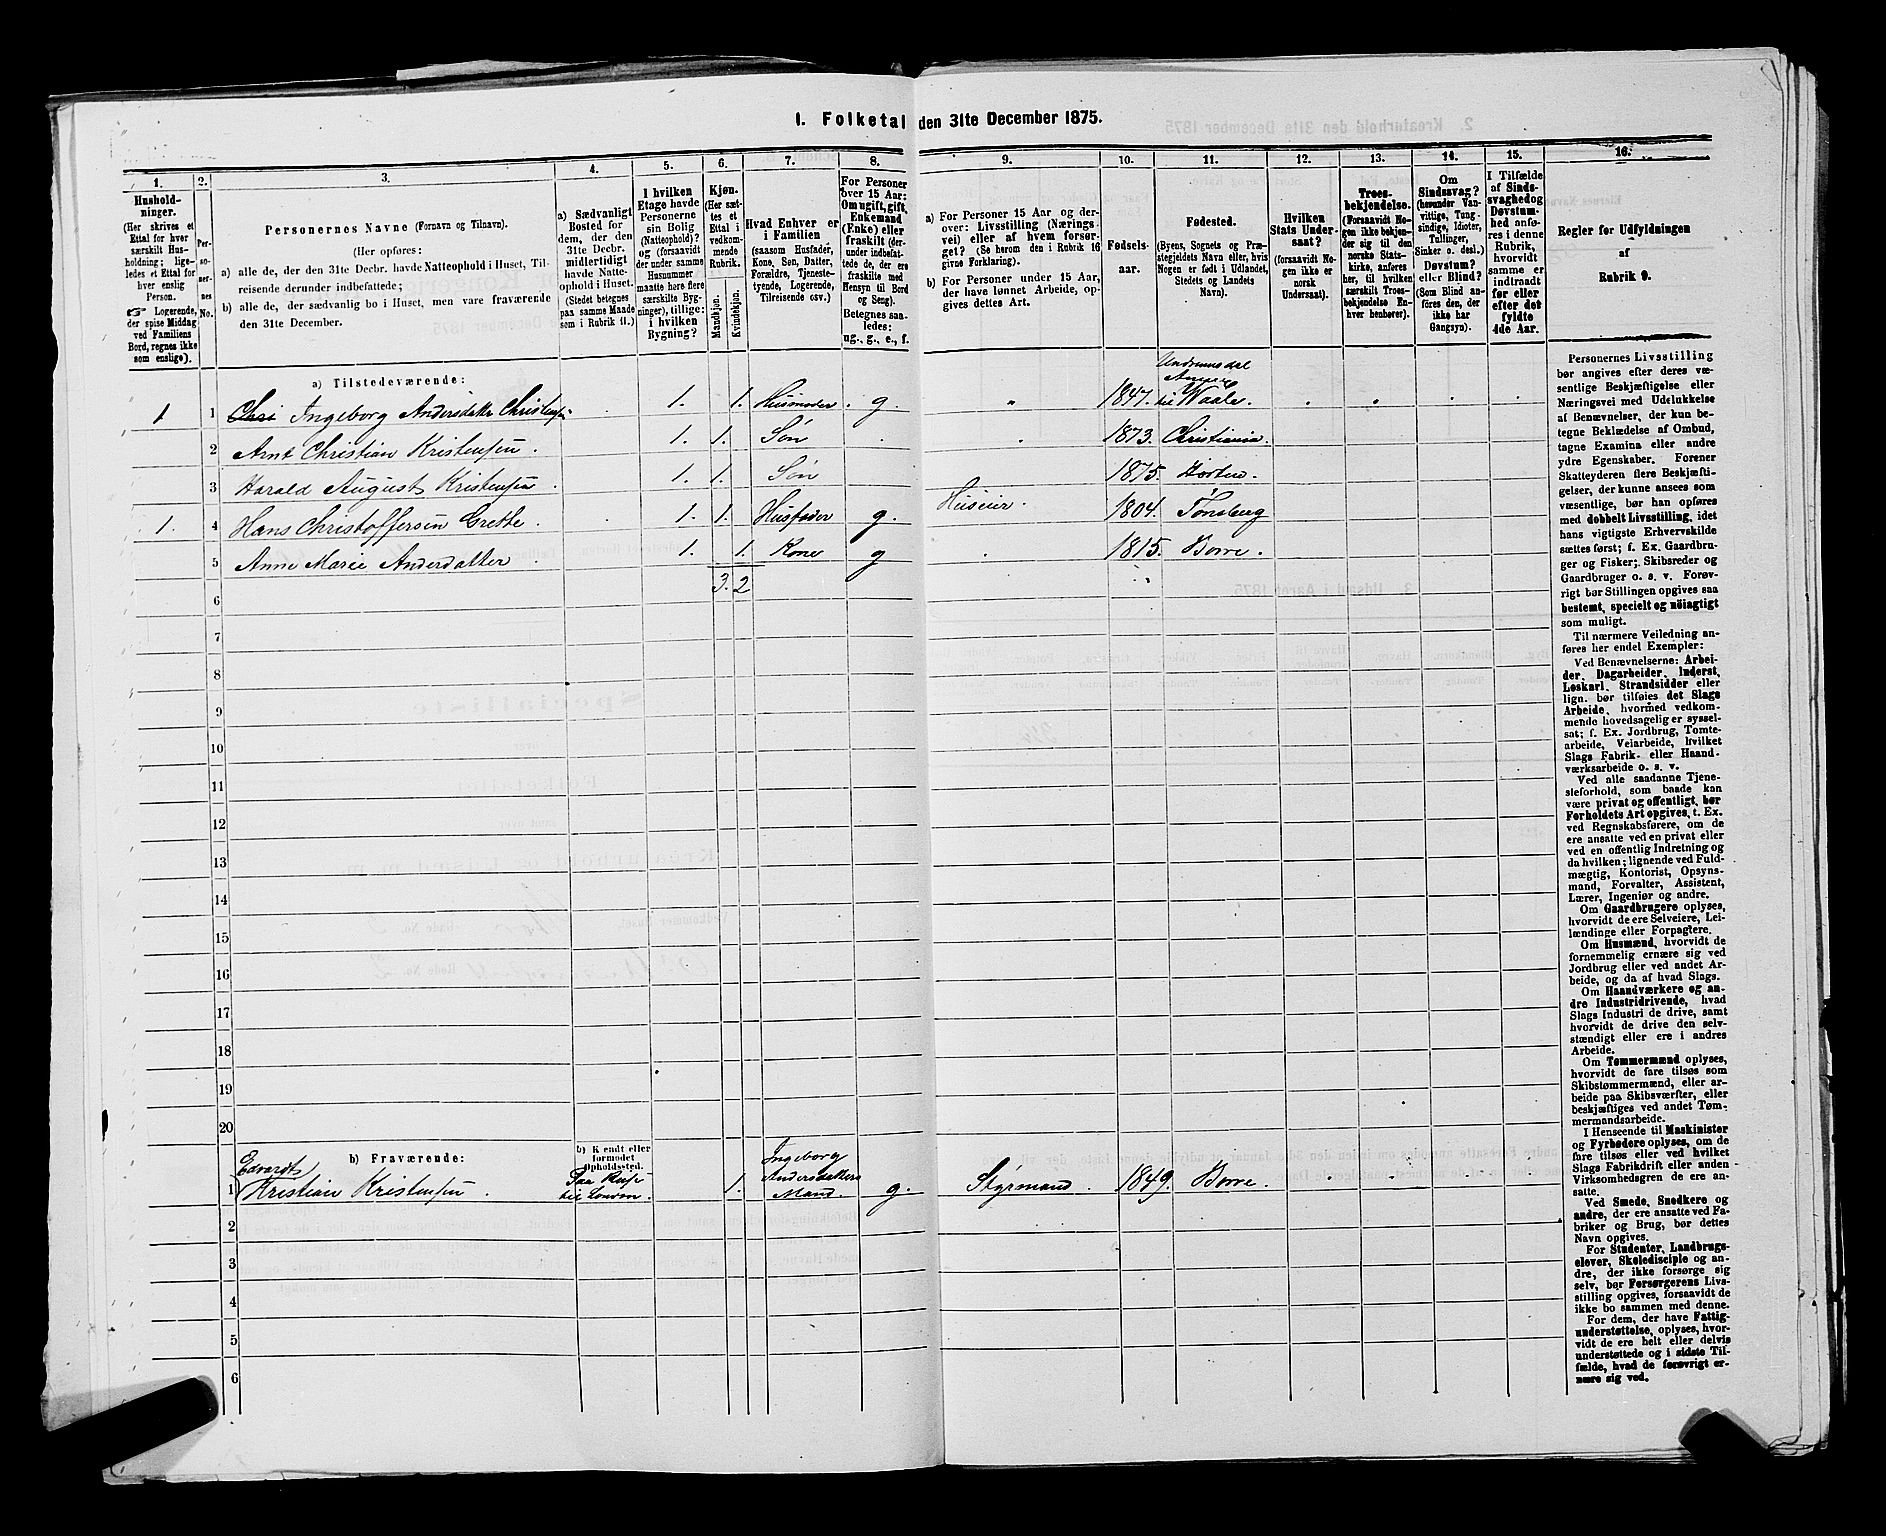 1. Folketal den 31te December 1875.
1.
2.
3.
4.
5.
6.
7.
8.
9.
10.
11.
12.
13.
14.
15.
16.
Hushold-
ninger.
(Her skrives et
Ettal for hver
særskilt Hus-
holdning; lige-
ledes et Ettal for
hver enslig
Person.
☞ Logerende,
der spise Middag
ved Familiens
Bord, regnes ikke
som enslige).
Per-
so-
ner-
nes
No.
Personernes Navne (Fornavn og Tilnavn).
(Her opføres:
a) alle de, der den 31te Decbr. havde Natteophold i Huset, Til-
reisende derunder indbefattede;
b) alle de, der sædvanlig bo i Huset, men vare fraværende
den 31te December.
a) Sædvanligt
Bosted for
dem, der den
31te Decbr.
midlertidigt
havde Natte-
ophold i Huset.
(Stedet betegnes
paa samme Maade
som i Rubrik 11.)
I hvilken
Etage havde
Personerne
sin Bolig
(Natteophold)?
og (forsaavidt
der under samme
Husnummer
maatte høre flere
særskilte Byg-
ninger), tillige:
i hvilken
Bygning?
Kjøn.
(Her sæt-
tes et
Ettal i
vedkom-
mende
Rubrik.
Mandkjøn.
Kvindekjøn.
Hvad Enhver er
i Familien
(saasom Husfader,
Kone, Søn, Datter,
Forældre, Tjeneste-
tyende, Logerende,
Tilreisende osv.)
For Personer
over 15 Aar:
Om ugift, gift,
Enkemand
(Enke) eller
fraskilt (der-
under indbefat-
tede de, der ere
fraskilte med
Hensyn til Bord
og Seng).
Betegnes saa-
ledes:
ug., g., e., f.
a) For Personer 15 Aar og der-
over: Livsstilling (Nærings-
vei) eller af hvem forsør-
get? (Se herom den i Rubrik 16
givne Forklaring).
b) For Personer under 15 Aar,
der have lønnet Arbeide, op-
gives dettes Art.
Fødsels-
aar.
Fødested.
(Byens, Sognets og Præ-
stegjeldets Navn eller, hvis
Nogen er født i Udlandet,
Stedets og Landets
Navn).
Hvilken
Stats Under-
saat?
(forsaavidt No-
gen ikke er
norsk
Undersaat).
Troes-
bekjendelse.
(Forsaavidt No-
gen ikke bekjen-
der sig til den
norske Stats-
kirke, anføres
her, til hvilken
særskilt Troes-
bekjendelse En-
hver henhører).
Om
Sindssvag?
(herunder Van-
vittige, Tung-
sindige, Idioter,
Tullinger,
Sinker o. desl.)
Døvstum?
eller Blind?
(Som Blind an-
føres den, der
ikke har
Gangsyn).
I Tilfælde
af Sinds-
svaghed og
Døvstum-
hed anfø-
res i denne
Rubrik,
hvorvidt
samme er
indtraadt
før eller
efter det
fyldte
4de Aar.
Regler for Udfyldningen
af
Rubrik 9.
a) Tilstedeværende:
1 1 Ingeborg Andersdatter Christensen 1. 1. Husmoder g. 1847. Undrumsdal Annex til Waale.
2 Arnt Christian Kristensen. 1. 1. Søn 1873. Christiania.
3 Harald August Kristensen 1. 1. Søn 1875. Horten.
1. 4 Hans Christoffersen Grette. 1. 1. Husfader g. Huseier. 1804. Tønsberg
5 Anne Marie Andersdatter 1. 1. Kone g 1815. Borre.
6 3. 2
7
8
9
10
11
12
13
14
15
16
17
18
19
20
b) Fraværende:
b) Kjendt eller
formodet
Opholdssted.
1 Edvardt Kristian Kristensen. Paa Reise til London. 1. Ingeborg Andersdatters Mand. g. Styrmand. 1849. Borre.
2
3
4
5
6
Personernes Livsstilling
bør angives efter deres væ-
sentlige Beskjæftigelse eller
Næringsvei med Udelukkelse
af Benævnelser, der kun be-
tegne Beklædelse af Ombud,
tagne Examina eller andre
ydre Egenskaber. Forener
Skatteyderen flere Beskjæfti-
gelser, der kunne ansees som
væsentlige, bør han opføres
med dobbelt Livsstilling, idet
hans vigtigste Erhvervskilde
sættes først; f. Ex. Gaardbru-
ger og Fisker; Skibsreder og
Gaardbruger o. s. v. Forøv-
rigt bør Stillingen opgives saa
bestemt, specielt og nøiagtigt
som muligt.
Til nærmere Veiledning an-
føres her endel Exempler:
Ved Benævnelserne: Arbei-
der, Dagarbeider, Inderst,
Løskarl, Strandsidder eller
lign. bør tilføies det Slags
Arbeide, hvormed vedkom-
mende hovedsagelig er syssel-
sat; f. Ex. Jordbrug, Tomte-
arbeide, Veiarbeide, hvilket
Slags Fabrik- eller Haand-
værksarbeide o. s. v.
Ved alle saadanne Tjene-
steforhold, som baade kan
være privat og offentligt, bør
Forholdets Art opgives, t. Ex.
ved Regnskabsførere, om de
ere ansatte ved en privat eller
ved en offentlig Indretning og
da hvilken; lignende ved Fuld-
mægtig, Kontorist, Opsyns-
mand, Forvalter, Assistent,
Lærer, Ingeniør og andre.
Om Gaardbrugere oplyses,
hvorvidt de ere Selveiere, Lei-
lændinge eller Forpagtere.
Om Husmænd, hvorvidt de
fornemmelig ernære sig ved
Jordbrug eller ved andet Ar-
beide, og da af hvad Slags.
Om Haandværkere og an-
dre Industridrivende, hvad
Slags Industri de drive, samt
hvorvidt de drive den selv-
stændigt eller ere i andres
Arbeide.
Om Tømmermænd oplyses,
hvorvidt de fare tilsøs som
Skibstømmermænd, eller ar-
beide paa Skibsværfter, eller
beskjæftiges ved andet Tøm-
mermandsarbeide.
I Henseende til Maskinister
og Fyrbødere oplyses, om de
fare tilsøs eller ved hvilket
Slags Fabrikdrift eller anden
Virksomhedsgren de ere an-
satte.
Ved Smede, Snedkere og
andre, der ere ansatte ved Fa-
briker og Brug, bør dettes
Navn opgives.
For Studenter, Landbrugs-
elever, Skoledisciple og an-
dre, der ikke forsørge sig
selv, bør Forsørgerens Livs-
stilling opgives, forsaavidt de
ikke bo sammen med denne.
For dem, der have Fattig-
understøttelse, oplyses, hvor-
vidt de ere helt eller delvis
understøttede og i sidste Til-
fælde, hvad de forøvrigt er-
nære sig ved.